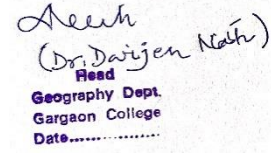 (Dr. Darijen Nath)
Head
Geography Dept.
Gargaon College
Date..................